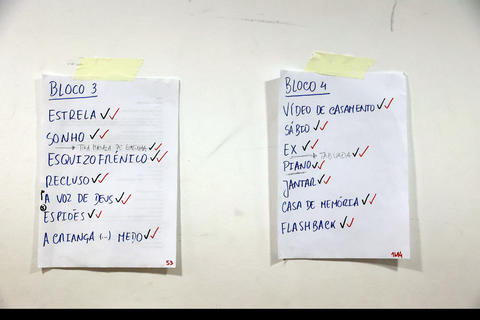 BLOCO 3
ESTRELA
SONHO
ESQUIZOFRÊNICO
RECLUSO
A VOZ DE DEUS
ESPIÕES
A CRIANÇA (...) MEDO
53
BLOCO 4
VÍDEO DE CASAMENTO
SÁBIO
EX
TABUADA
PIANO
JANTAR
CASA DE MEMÓRIA
FLASHBACK